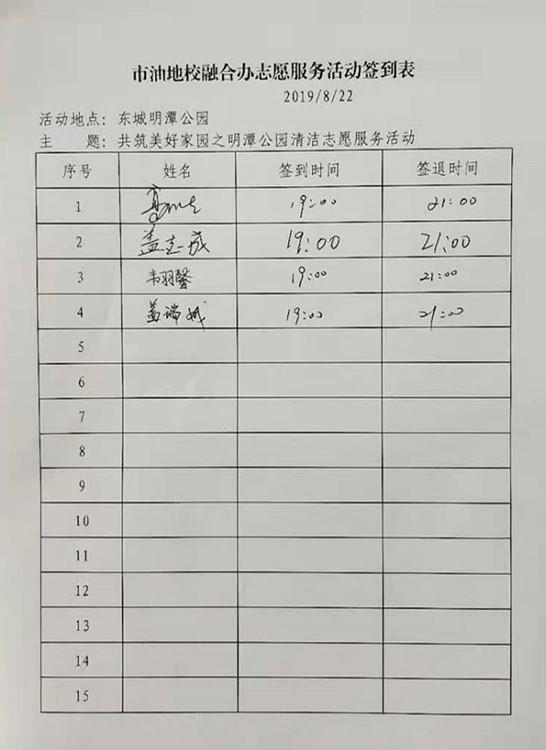 市油地校融合办志愿服务活动签到表
2019/8/22
活动地点：东城明潭公园
主 题：共筑美好家园之明潭公园清洁志愿服务活动
序号 姓名 签到时间 签退时间
1 高 19:00 21:00
2 盖志成 19:00 21:00
3 韦羽馨 19:00 21:00
4 盖瑞 19:00 21:00
5
6
7
8
9
10
11
12
13
14
15